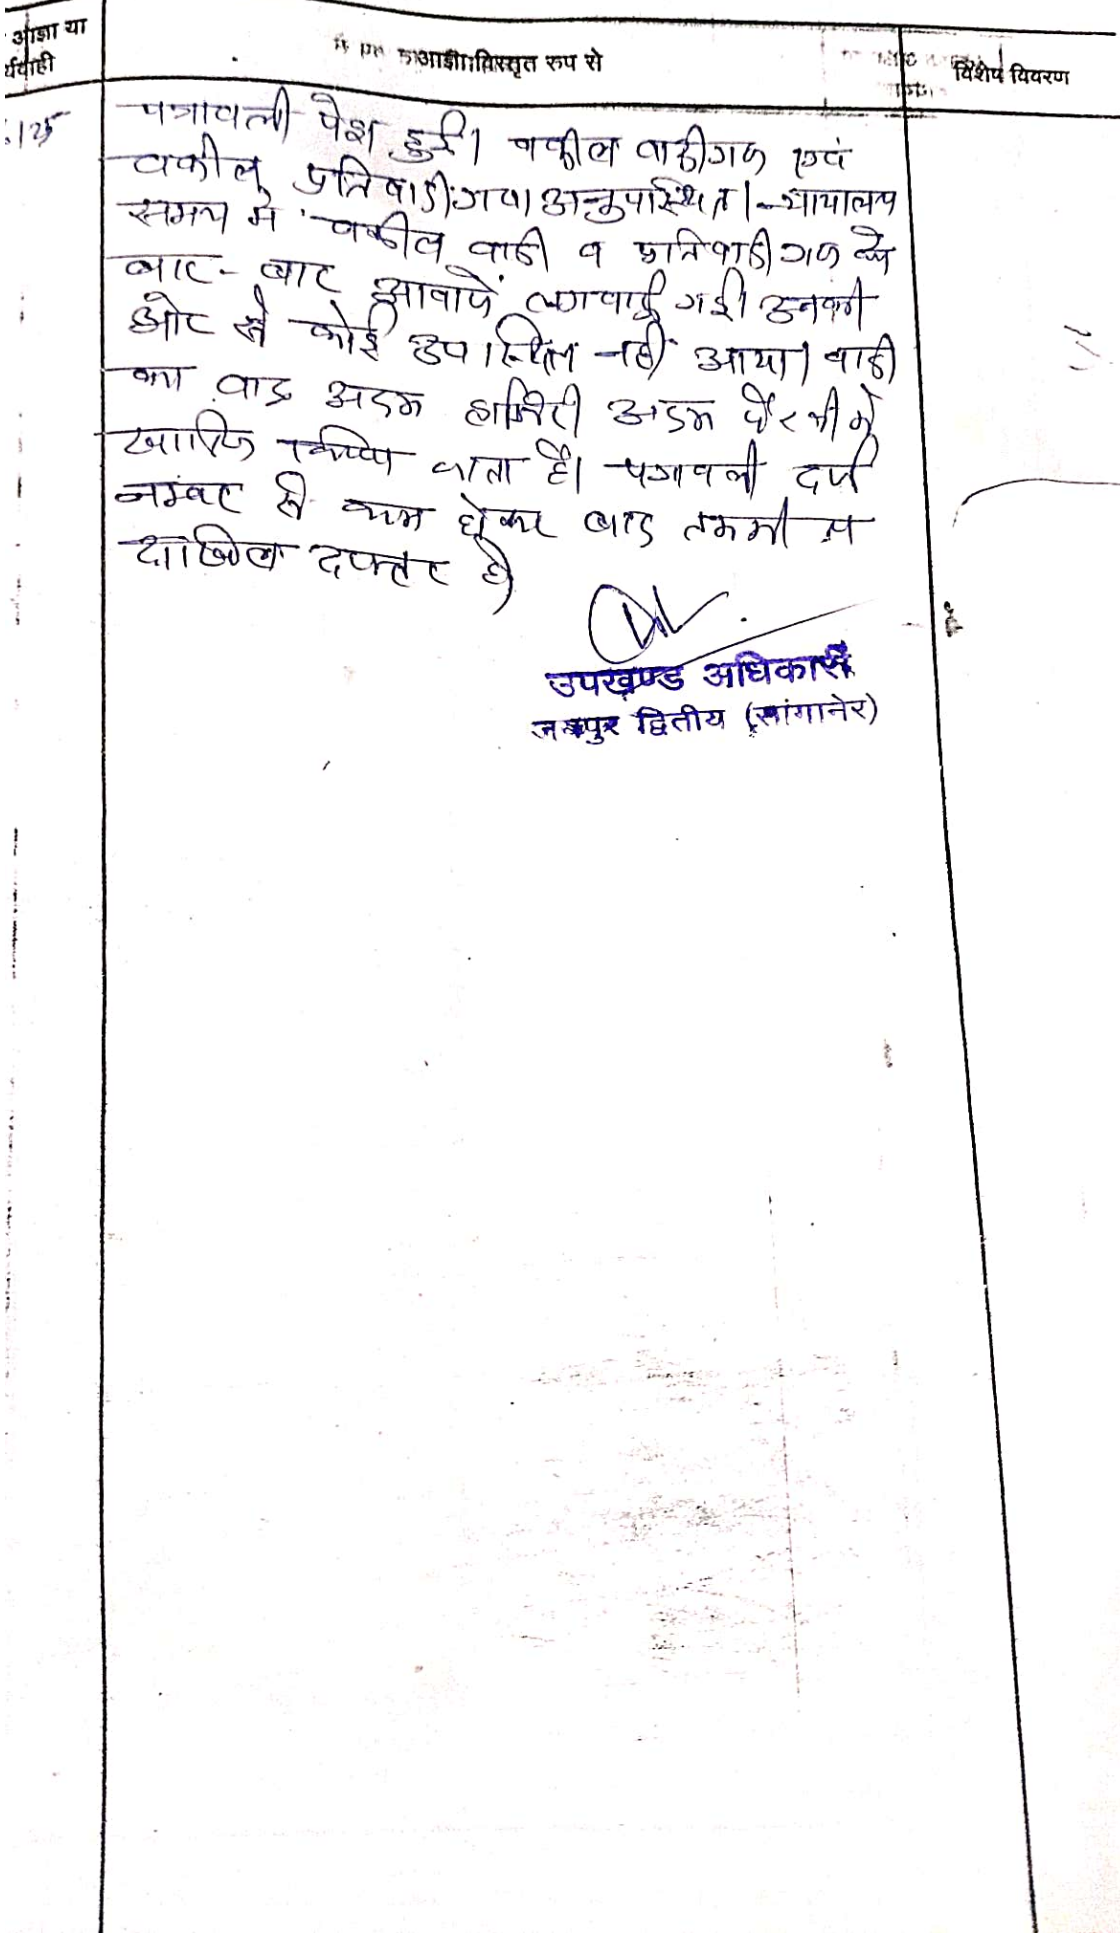 आज्ञा या
र्यवाही
आज्ञा विस्तृत रुप से
विशेष विवरण
/25
पत्रावली पेश हुई। वकील वादीगण एवं
वकील प्रतिवादीगण अनुपस्थित। न्यायालय
समय में वकील वादी व प्रतिवादीगण को
बार-बार आवाजें लगवाई गई। उनकी
ओर से कोई उपस्थित नहीं आया। वादी
का वाद अदम हाजिरी अदम पैरवी में
खारिज किया जाता है। पत्रावली दर्ज
नम्बर से कम होकर बाद तकमील
दाखिल दफ्तर हो
उपखण्ड अधिकारी
जयपुर द्वितीय (सांगानेर)